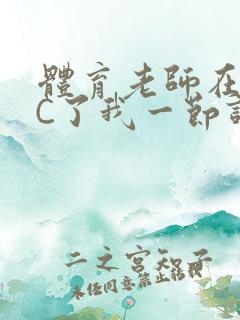 體育老師在
C了我一節
二之宮知子
未任同意禁止转载